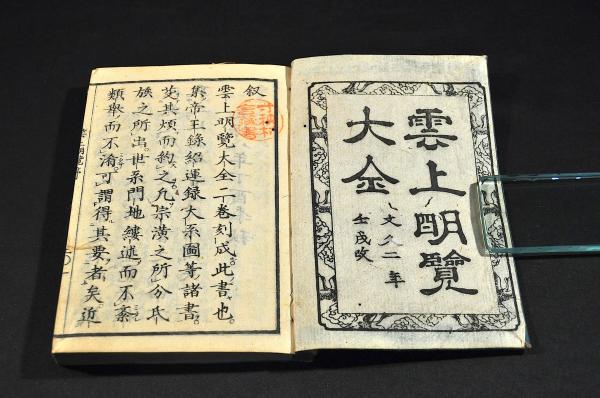 雲上明覽
大全
文久二年
壬戌改
叙
雲上明覽大全二卷刻成此書也。
帝王錄紹運録大系圖等諸書。
芟其煩而約之凡宗潢之所分氏
族之所出。世系門地縷述而不紊
類舉而不淆可謂得其要者矣近